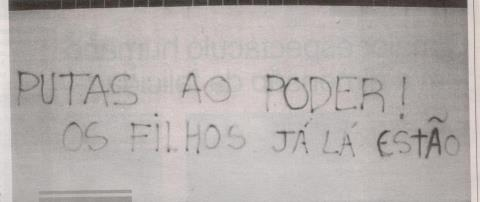 PUTAS AO PODER!
OS FILHOS JÁ LÁ ESTÃO